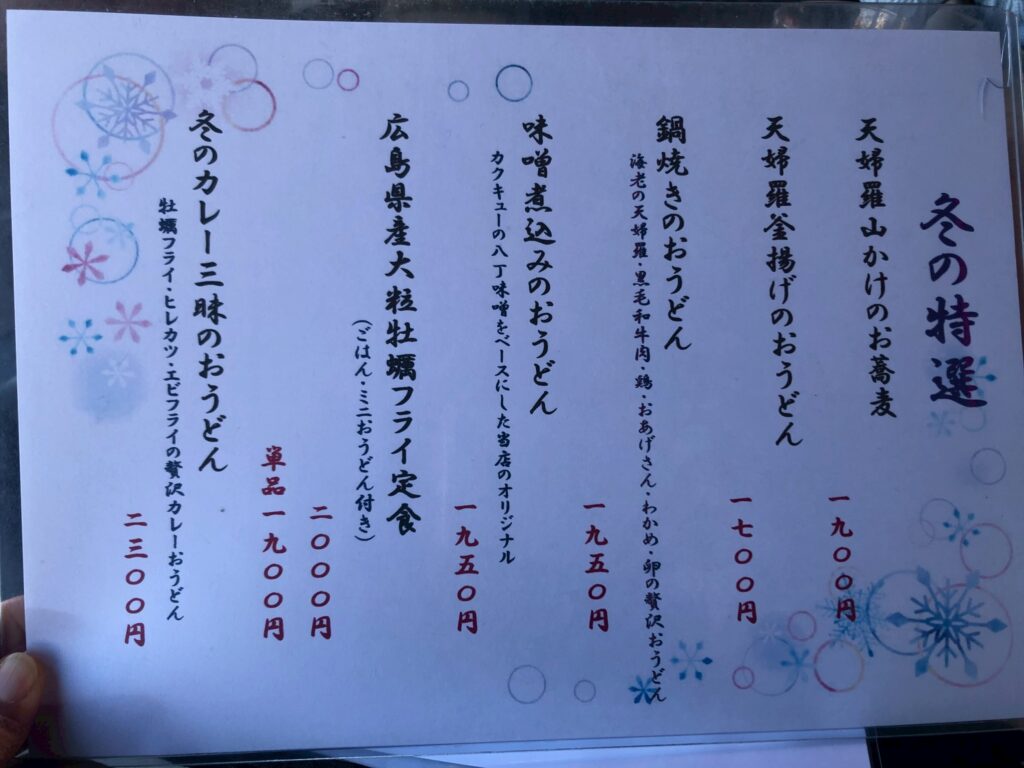 冬の特選
天婦羅山かけのお蕎麦
一九〇〇円
天婦羅釜揚げのおうどん
一七〇〇円
鍋焼きのおうどん
海老の天婦羅・黒毛和牛肉・鶏・おあげさん・わかめ・卵の贅沢おうどん
一九五〇円
味噌煮込みのおうどん
カクキューの八丁味噌をベースにした当店のオリジナル
一九五〇円
広島県産大粒牡蠣フライ定食
(ごはん・ミニおうどん付き)
二〇〇〇円
単品一九〇〇円
冬のカレー三昧のおうどん
牡蠣フライ・ヒレカツ・エビフライの贅沢カレーおうどん
二三〇〇円